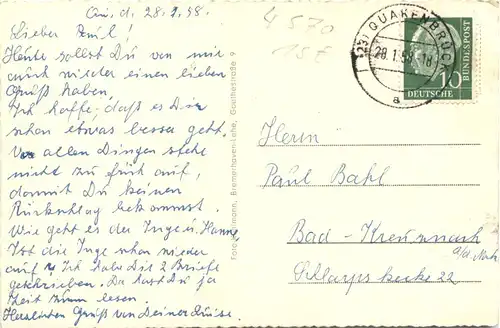 Qui, d. 28.1.58.
Lieber Paul!
Heute sollst Du von mir
auch wieder einen lieben
Gruß haben.
Ich hoffe, daß es Dir
schon etwas besser geht.
Vor allen Dingen stehe
nicht zu früh auf,
damit Du keinen
Rückschlag bekommst.
Wie geht es der Inge u. Hanne
Ist die Inge schon wieder
auf? Ich habe die 2 Briefe
geschrieben. Da hast Du ja
Zeit zum lesen.
Herzlichen Gruß von Deiner Luise.
4570
75£
(23) QUAKENBRÜCK
28.1.58.18
a
10
DEUTSCHE
BUNDESPOST
Bremerhaven-Lehe, Goethestraße 9
Herrn
Paul Bahl
Bad-Kreuznach
a/d. Nahe
22